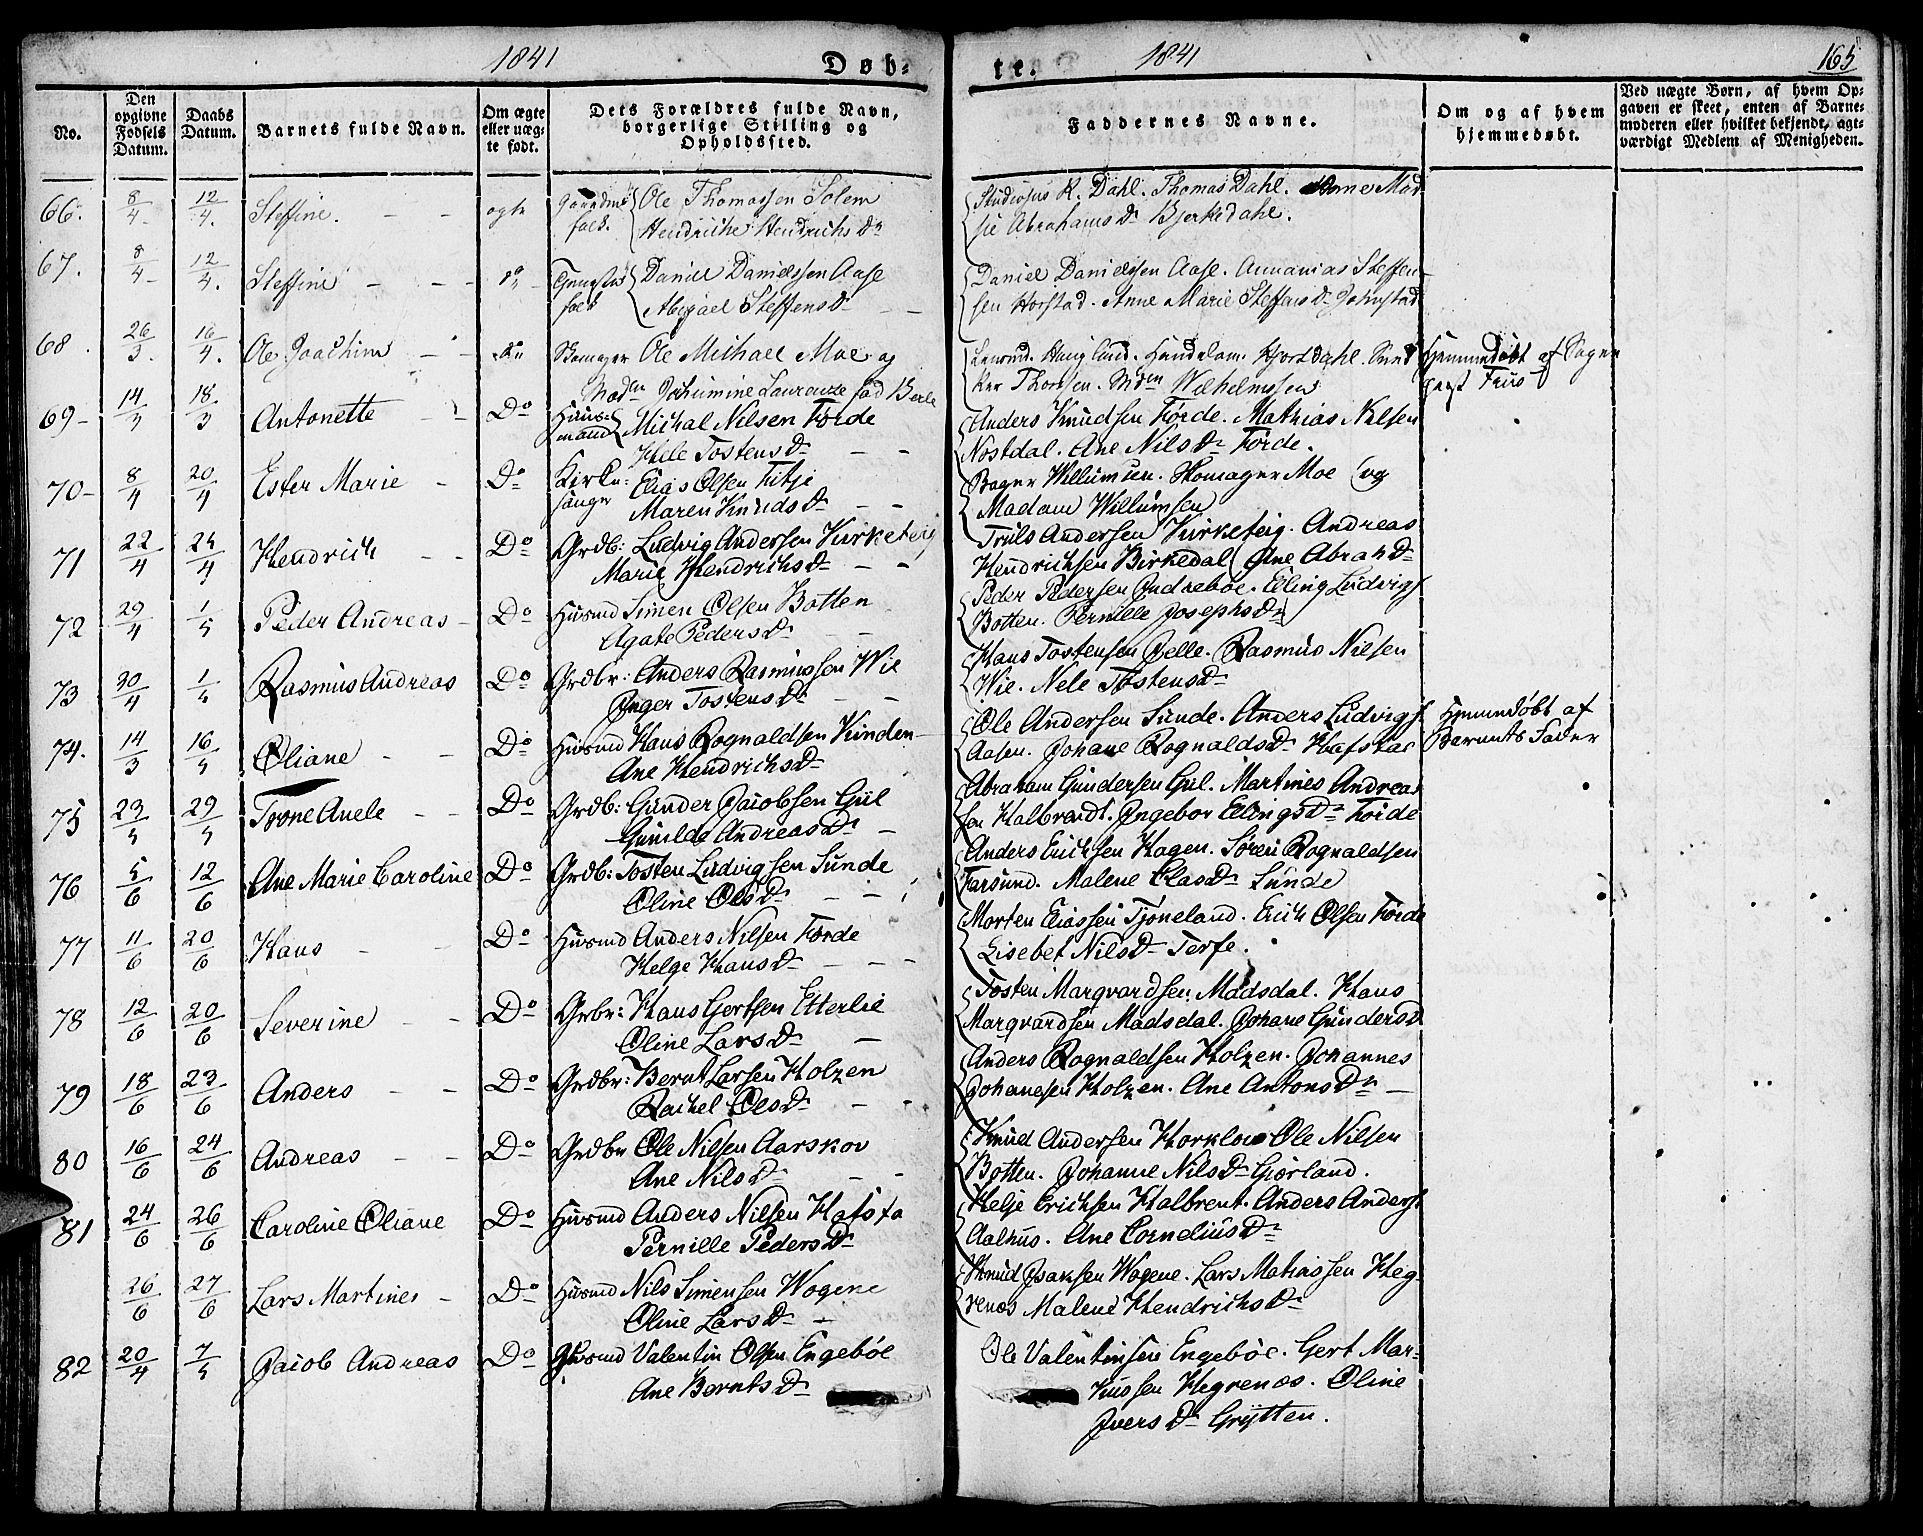 1841 Døb-
te. 1841 165
No.
Den opgivne Fødsels Datum.
Daabs Datum.
Barnets fulde Navn.
Om ægte eller uæg-
te født.
Dets Forældres fulde Navn,
borgerlige Stilling og
Opholdssted.
Faddernes Navne.
Om og af hvem
hjemmedøbt.
Ved uægte Børn, af hvem Op-
gaven er skeet, enten af Barne-
moderen eller hvilket bekjendt, agt-
værdigt Medlem af Menigheden.
66. 8/4 12/4. Steffine. ægte Ole Thomassen Solem
folk. Hendriche Hendrichs Dr
Studiosus R. Dahl. Thomas Dahl. Anne Mar-
Abrahams Dr Bjerkedahl.
67. 8/4 12/4. Steffine Do Daniel Danielssen Aase
folk Abigael Steffens Dr
Daniel Danielssen Aase. Annanias Steffen-
sen Horstad. Anne Marie Steffens Dr
68. 26/3. 16/4. Ole Joachim Do Skomager Ole Michael Moe og
Madm
Hougland. Hjortdahl.
Thorsen. Mdm Wilhelmsen
Hjemmedøbt af Sogne-
præst Friis
69 14/3 18/3 Antonette Do Huus-
mand Michal Nilsen Förde
Tostens Dr
Anders Knudsen Förde. Mathias Nilsen
Nostdal. Ane Nils Dr Förde.
70 8/4 20/4 Ester Marie Do Kirke-
sanger Elias Olsen Fitje
Maren Knuds Dr
Bager Willumsen. Skomager Moe og
Madam Willumsen
71 22/4 24/4 Hendrich Do Grdb: Ludvig Andersen Kirketeig
Marie Hendrichs Dr
Truls Andersen Kirketeig. Andreas
Hendrichsen Birkedal Ane Abrah Dr
72 29/4 1/5 Peder Andreas Do Husmd Simen Olsen Botten
Agate Peders Dr
Peder Pedersen Indreboe. Elling Ludvigs
Botten. Pernille Josephs Dr
73 30/4 1/4 Rasmus Andreas Do Grdbr: Anders Rasmussen Wie
Inger Tostens Dr
Hans Tostensen Jelle. Rasmus Nilsen
Wie. Nele Tostens Dr
74. 14/3 16/5 Oliane Do Husmd Hans Rognaldsen Kinden
Ane Hendrichs Dr
Ole Andersen Sunde. Anders Ludvigs
Aasen. Johane Rognalds Dr Hafstad
Hjemmedøbt af
Barnets Fader
75 23/5 29/5 Trone Anele Do Grdb: Gunder Jacobsen Gül
Gunilda Andreas Dr
Abraham Gundersen Gül. Martines Andreas
sen Halbrendt. Ingebor Ellings Dr Förde
76 5/6 12/6 Ane Marie Caroline Do Grdb: Tosten Ludvigsen Sunde
Oline Ols Dr
Anders Erichsen Hagen. Sören Rognaldsen
Farsund. Malene Clas Dr Sunde
77 11/6 20/6 Hans Do Husmd Anders Nilsen Förde
Helge Hans Dr
Morten Eliassen Tjoneland. Erich Olsen Förde
Lisebet Nils Dr Terfe.
78 12/6 20/6 Severine Do Grbr: Hans Gertsen Etterlie
Oline Lars Dr
Tosten Marqvardsen. Madsdal. Hans
Marqvardsen Madsdal. Johane Gunders D
79 18/6 23/6 Anders Do Grdbr: Bernt Larsen Holzen
Rachel Ols Dr
Anders Rognaldsen Holzen. Johannes
Johanesen Holzen. Ane Antons Dr
80 16/6 24/6 Andreas Do Grdbr Ole Nilsen Aarskov
Ane Nils Dr
Knud Andersen Horklou Ole Nilsen
Botten. Johanne Nils Dr Gjorland.
81 24/6 26/6 Caroline Oliane Do Husmd Anders Nilsen Hafsta
Pernille Peders Dr
Helje Erichsen Halbrent. Anders Anders
Aalhus. Ane Cornelius Dr
26/6 27/6 Lars Martines Do Husmd Nils Simensen Wogene
Oline Lars Dr
Knud Isaksen Wogene. Lars Matiassen Heg-
renes Malene Hendrichs Dr
82 20/4 7/5 Jacob Andreas Do Husmd Valentin Olsen Engeböe
Ane Bernts Dr
Ole Valentinsen Engeböe. Gert Mar-
kussen Hegrenes. Oline
Ivers Dr Grytten.